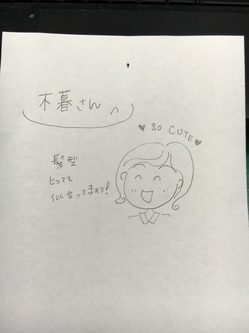 木暮さんへ
♥ SO CUTE ♥
髪型
とっても
似合ってますヨ!